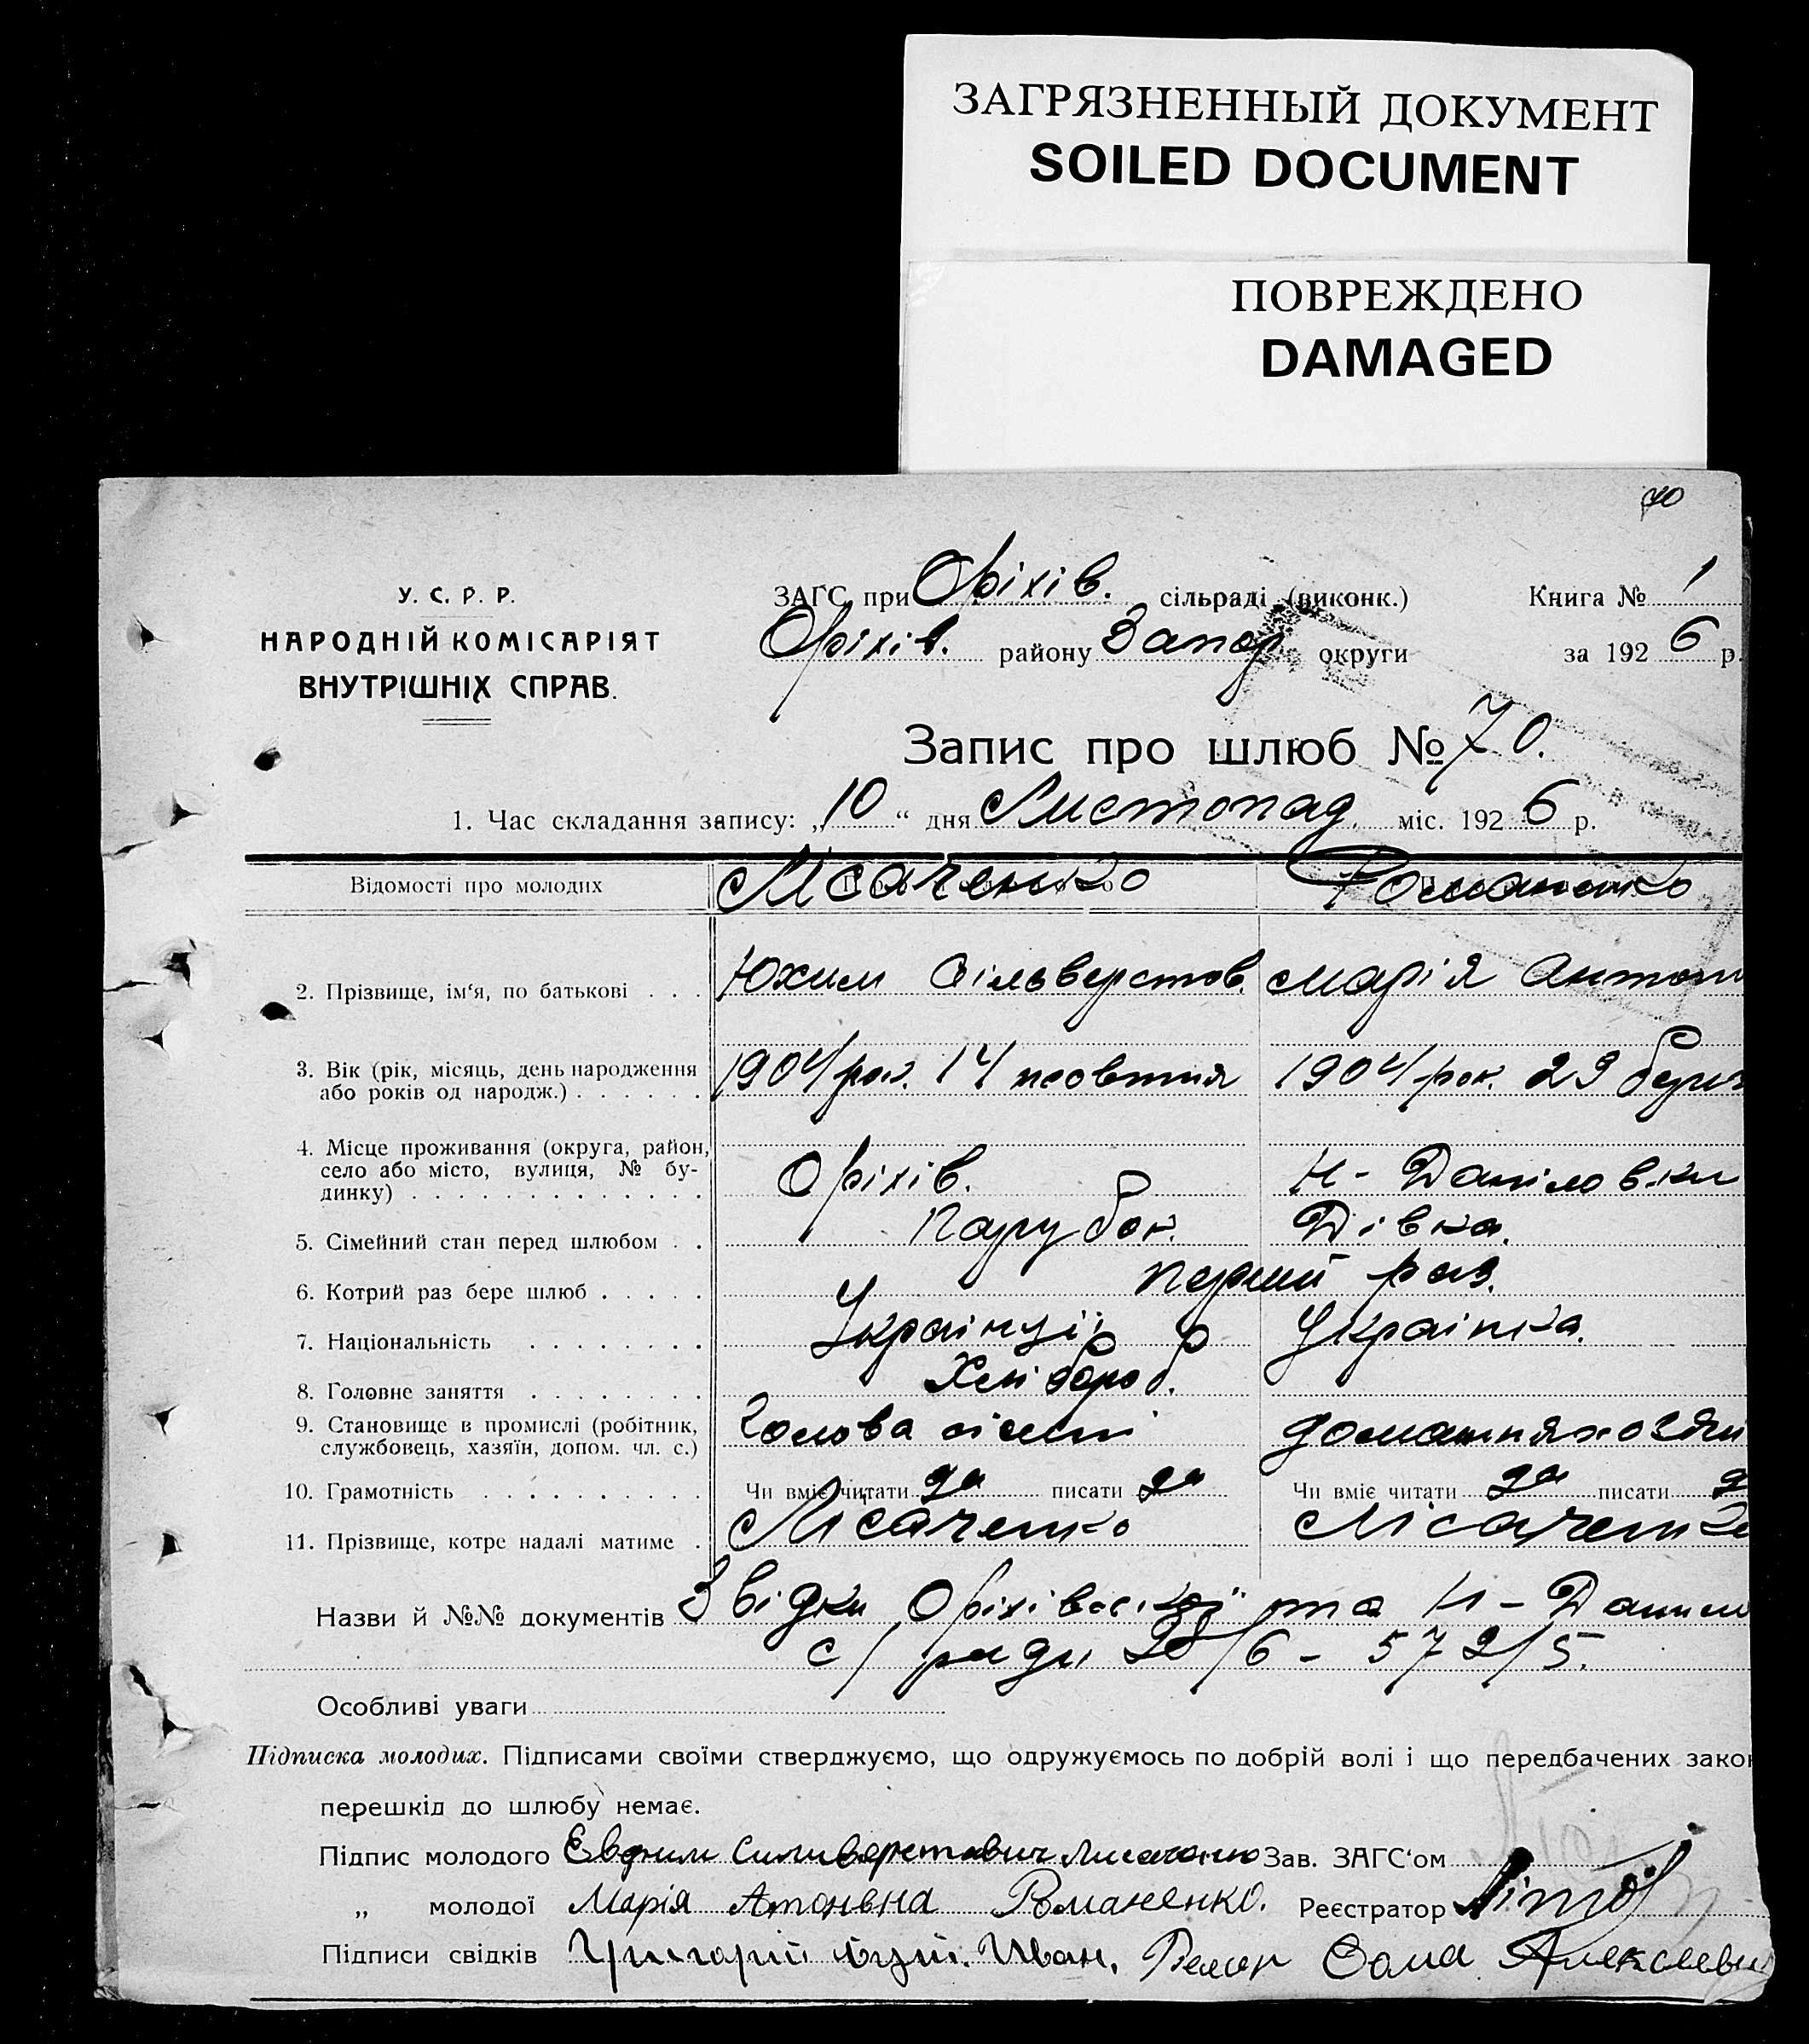 ЗАГРЯЗНЕННЫЙ ДОКУМЕНТ
SOILED DOCUMENT
ПОВРЕЖДЕНО
DAMAGED
70
У. С. Р. Р.
НАРОДНІЙ КОМІСАРІЯТ
ВНУТРІШНІХ СПРАВ.
ЗАГС при Оріхів. сільраді (виконк.) Книга № 1
Оріхів. району Запор. округи за 1926 р.
Запис про шлюб № 70.
1. Час складання запису: „10“ дня Листопад. міс. 1926 р.
Відомості про молодих Лісаченко Романенко
2. Прізвище, ім‘я, по батькові . . . Юхим Сільверстов. Марія Антон
3. Вік (рік, місяць, день народження 1904 рок. 14 жовтня 1904 рок. 29
або років од народж.) . . . . . .
4. Місце проживання (округа, район,
село або місто, вулиця, № бу- Оріхів. Н- Даніловки
динку) . . . . . . . . . . . . .
5. Сімейний стан перед шлюбом . . Парубок. Дівка.
6. Котрий раз бере шлюб . . . . . перший раз.
7. Національність . . . . . . . . Українці Українка.
8. Головне заняття . . . . . . . . Хлібороб.
9. Становище в промислі (робітник, Голова сімї домашня хозяй
службовець, хазяїн, допом. чл. с.)
10. Грамотність . . . . . . . . . . Чи вміє читати да писати да Чи вміє читати да писати д
11. Прізвище, котре надалі матиме . Лісаченко Лісаченко
Назви й №№ документів Звідки Оріхівської та Н-Данил
с/ради 28/6 - 572/5.
Особливі уваги
Підписка молодих. Підписами своїми стверджуємо, що одружуємось по добрій волі і що передбачених закон
перешкід до шлюбу немає.
Підпис молодого Евфим Силиверстович Лисаченко Зав. ЗАГС‘ом
„ молодої Марія Атонівна Романенко. Реєстратор
Підписи свідків Григорій Іван, Сома Алексіеви